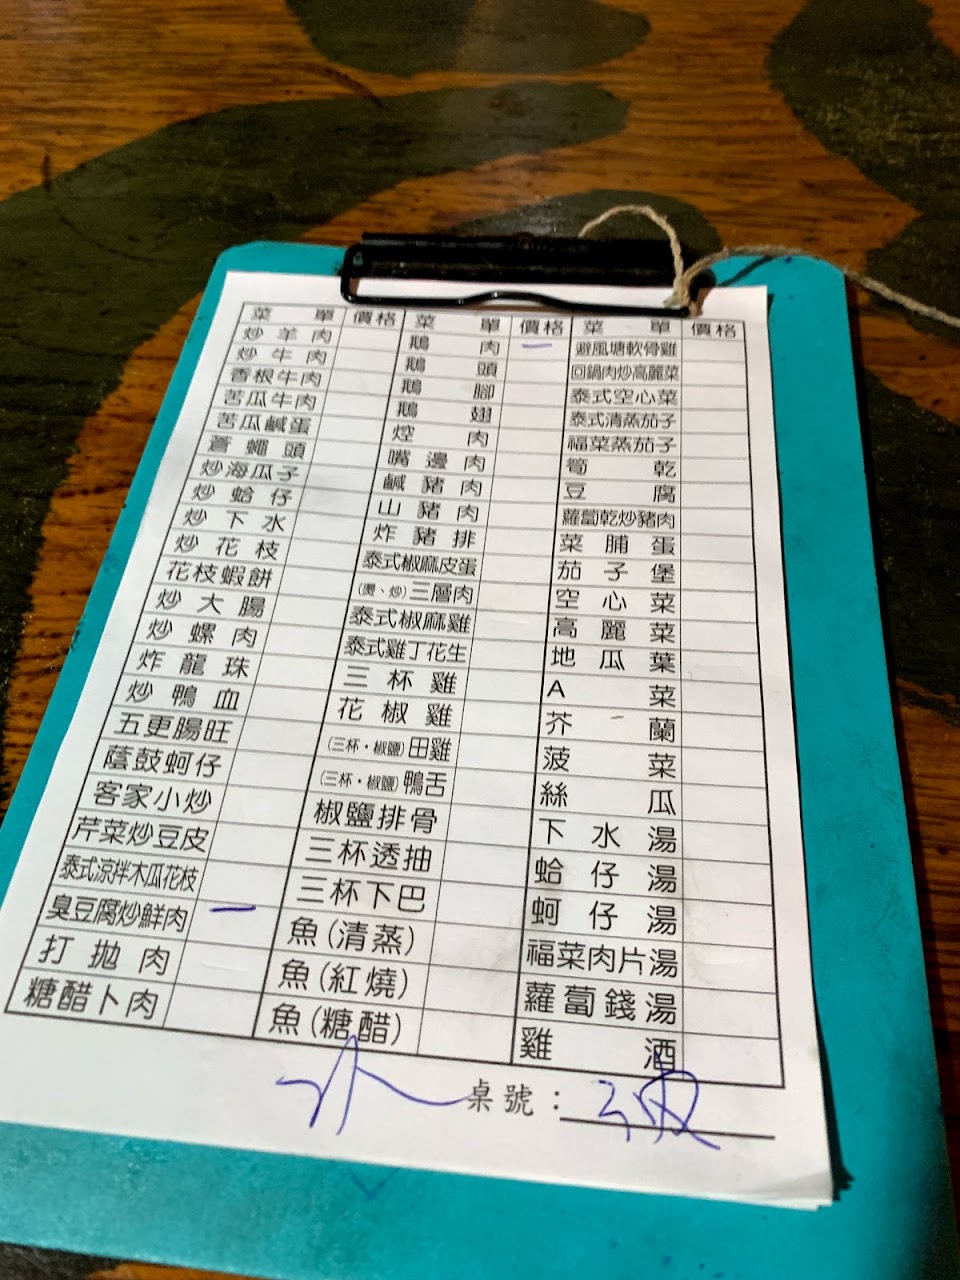 菜單 價格 菜單 價格 菜單 價格
炒羊肉 鵝肉 一 避風塘軟骨雞
炒牛肉 鵝頭 回鍋肉炒高麗菜
香根牛肉 鵝腳 泰式空心菜
苦瓜牛肉 鵝翅 泰式清蒸茄子
苦瓜鹹蛋 焢肉 福菜蒸茄子
蒼蠅頭 嘴邊肉 筍乾
炒海瓜子 鹹豬肉 豆腐
炒蛤仔 山豬肉 蘿蔔乾炒豬肉
炒下水 炸豬排 菜脯蛋
炒花枝 泰式椒麻皮蛋 茄子堡
花枝蝦餅 (燙、炒)三層肉 空心菜
炒大腸 泰式椒麻雞 高麗菜
炒螺肉 泰式雞丁花生 地瓜葉
炸龍珠 三杯雞 A菜
炒鴨血 花椒雞 芥蘭
五更腸旺 (三杯・椒鹽)田雞 菠菜
蔭鼓蚵仔 (三杯・椒鹽)鴨舌 絲瓜
客家小炒 椒鹽排骨 下水湯
芹菜炒豆皮 三杯透抽 蛤仔湯
泰式涼拌木瓜花枝 三杯下巴 蚵仔湯
臭豆腐炒鮮肉 一 魚(清蒸) 福菜肉片湯
打拋肉 魚(紅燒) 蘿蔔錢湯
糖醋卜肉 魚(糖醋) 雞酒
桌號：